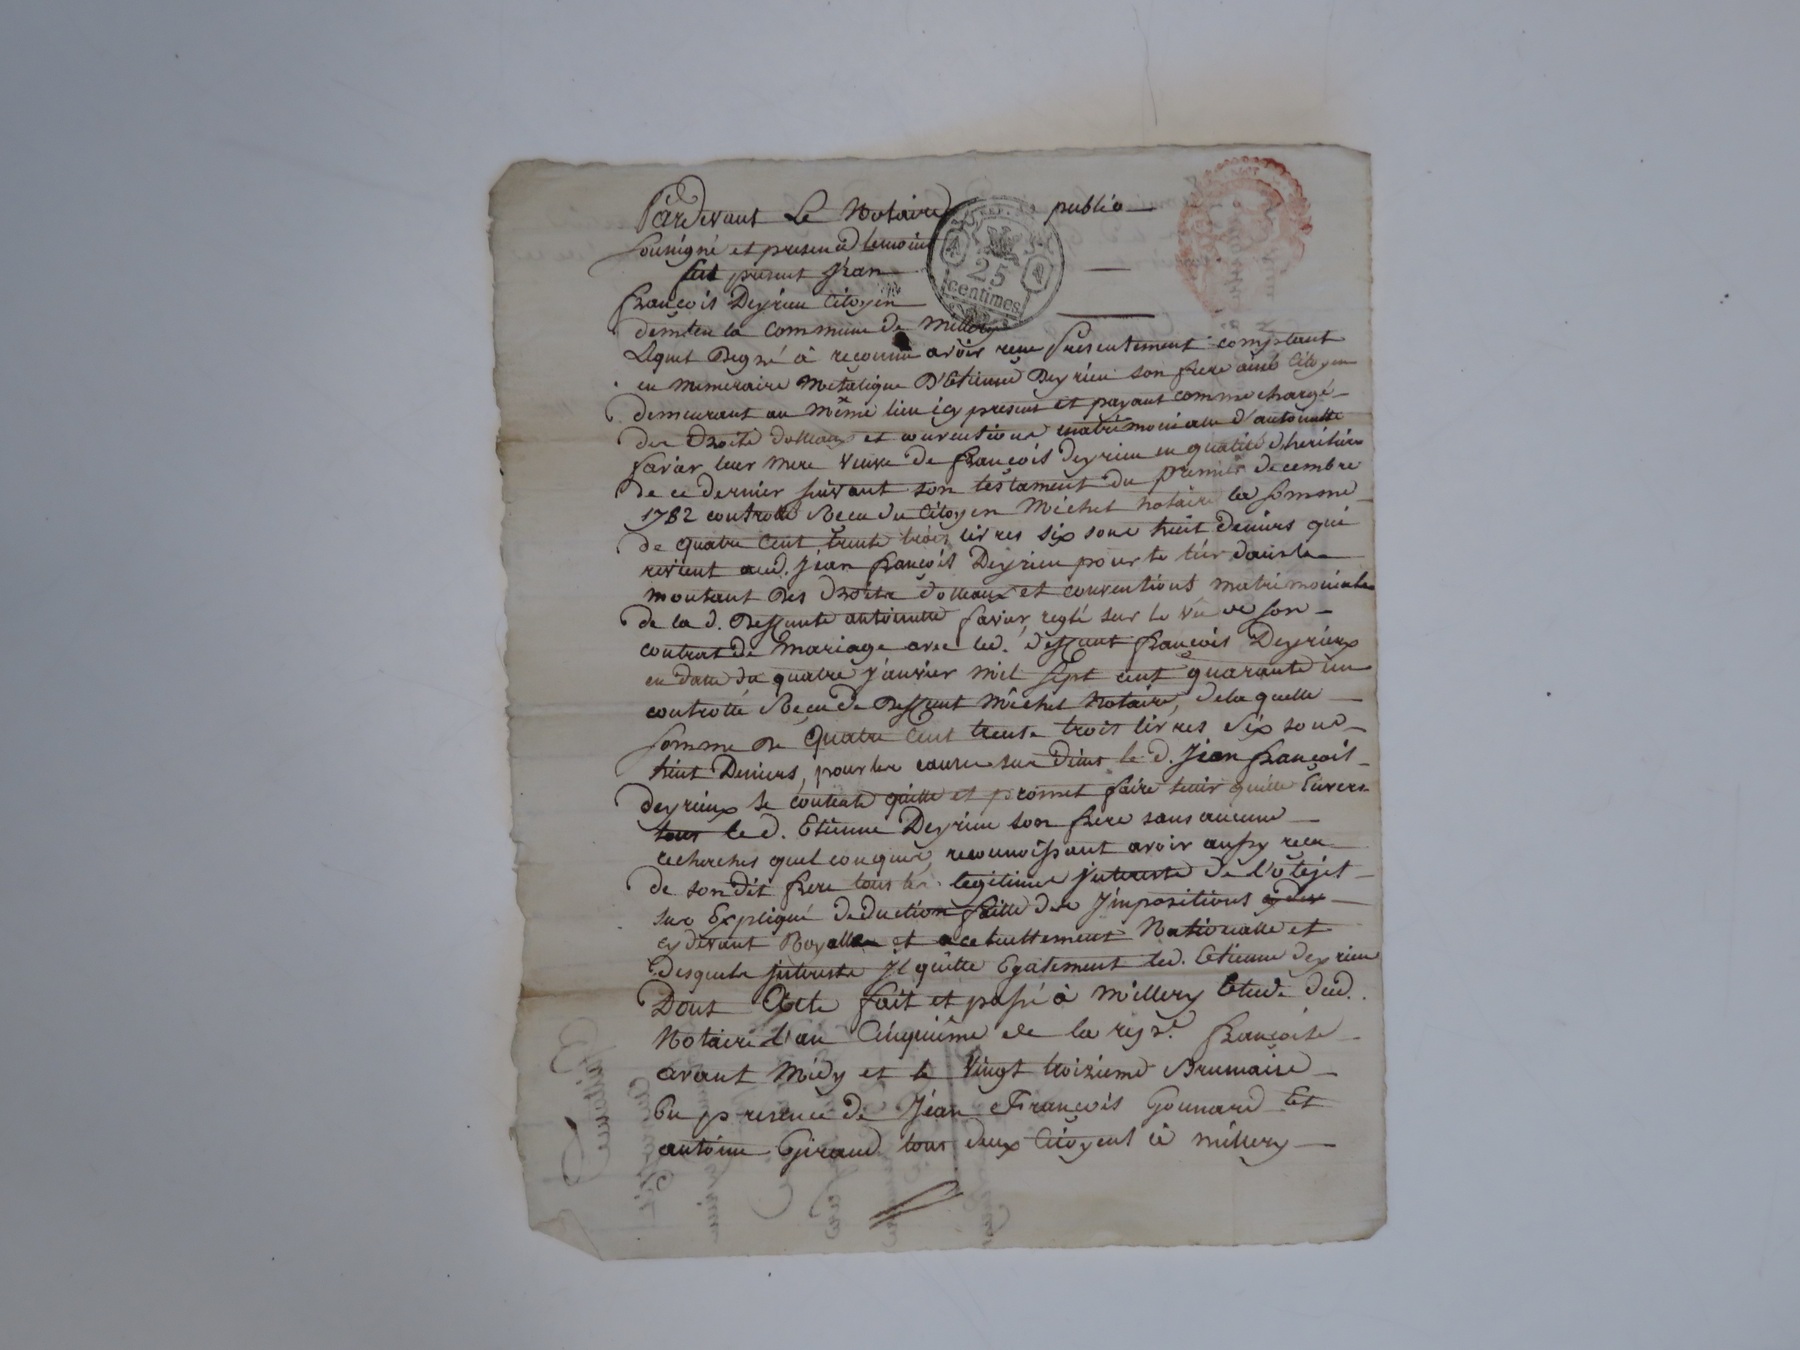 Pardevant Le Notaire public
soussigné et presence de temoins
fut present Jean
françois Deyrieu Citoyen
demt en la Commune de Millery
Lequel De gré à reconnu avoir recu Presentement comptant
en numeraire metalique D'Etienne Deyrieu son frere ainé Citoyen
demeurant au même lieu icy present et payant comme chargé
des droits dottaux et conventions matrimoniaux d'antoinette
favier leur mere veuve de françois deyrieu en qualité d'heritier
de ce dernier suivant son testament du premier decembre
1782 controllé Recu du Citoyen Michel notaire la somme
de quatre cent trente trois livres six sous huit deniers qui
revient aud. Jean françois Deyrieu pour le tier dans le
montant des droits dottaux et conventions matrimoniales
de la d. deffunte antoinette favier, reglé sur le vu de son
contrat de Mariage avec led. deffunt françois Deyrieux
en datte du quatre Janvier mil sept cent quarante un
controllé Recu de deffunt Michel Notaire, de laquelle
somme de quatre cent trente trois livres six sous
huit Deniers, pour les causes sus dittes le d. Jean françois
deyrieux se contente quitte et promet faire tenir quitte Envers
tous led. Etienne Deyrieu son frere sans aucune
recherches quelconques, reconnoissant avoir aussy recu
de son dit frere tous les legitimes Interests de l'objet
sus Expliqué deduction faitte des Impositions
cy devant Royalles et actuellement Nationalle et
desquels Interests Il quitte Egalement led. Etienne deyrieu
Dont Acte fait et passé à Millery Etude dud.
Notaire l'an Cinquième de la rep.e françoise
avant Midy et le Vingt troizieme Brumaire
En presence de Jean François Gounard Et
antoine Giraud tous deux Citoyens à millery
25
centimes